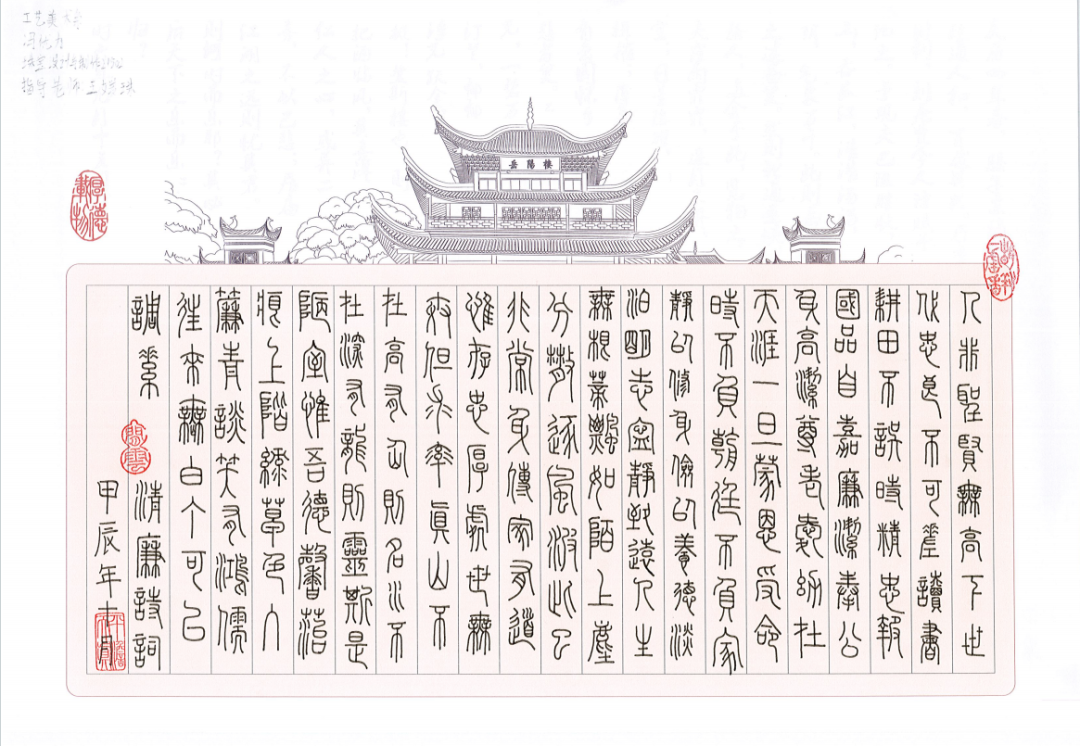 岳陽樓
厚德載物
人非聖賢無高下世
代忠良不可差讀書
耕田不誤時精忠報
國品自嘉廉潔奉公
身高潔尊老愛幼在
天涯一旦蒙恩受命
時不負朝廷不負家
靜以修身儉以養德淡
泊明志寧靜致遠人生
無根蒂飄如陌上塵
分散逐風此已
非常身傳家有道
惟存忠厚處世無
奇但求率真山不
在高有仙則名水不
在深有龍則靈斯是
陋室惟吾德馨苔
痕上階綠草色入
簾青談笑有鴻儒
往來無白丁可以
調素
清廉詩詞
甲辰年十月